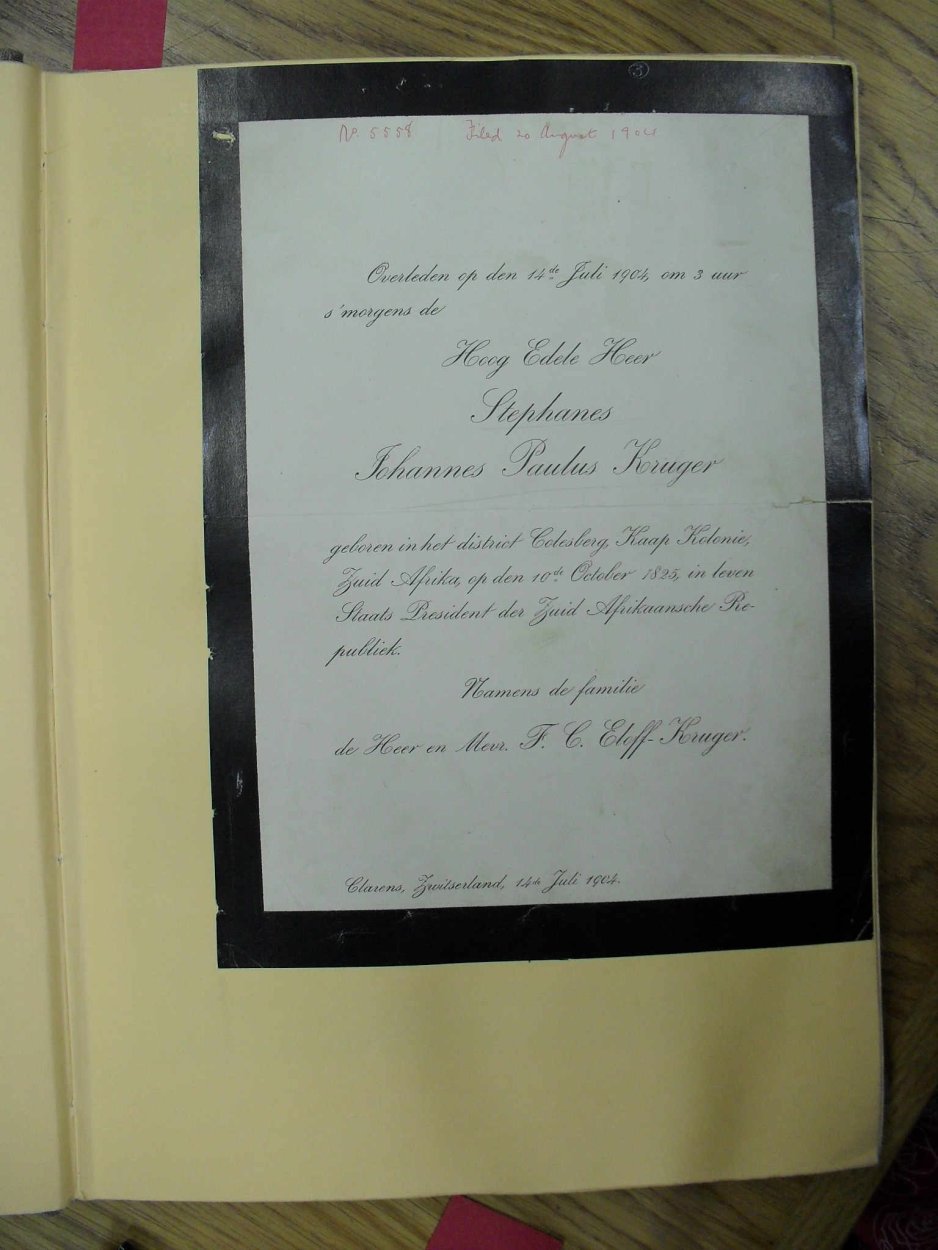 3
No. 5558 Filed 20 August 1904
Overleden op den 14de Juli 1904, om 3 uur
s'morgens de
Hoog Edele Heer
Stephanes
Johannes Paulus Kruger
geboren in het district Colesberg, Kaap Kolonie,
Zuid Afrika, op den 10de October 1825, in leven
Staats President der Zuid Afrikaansche Re-
publiek.
Namens de familie
de Heer en Mevr. F. C. Eloff-Kruger.
Clarens, Zwitserland, 14de Juli 1904.